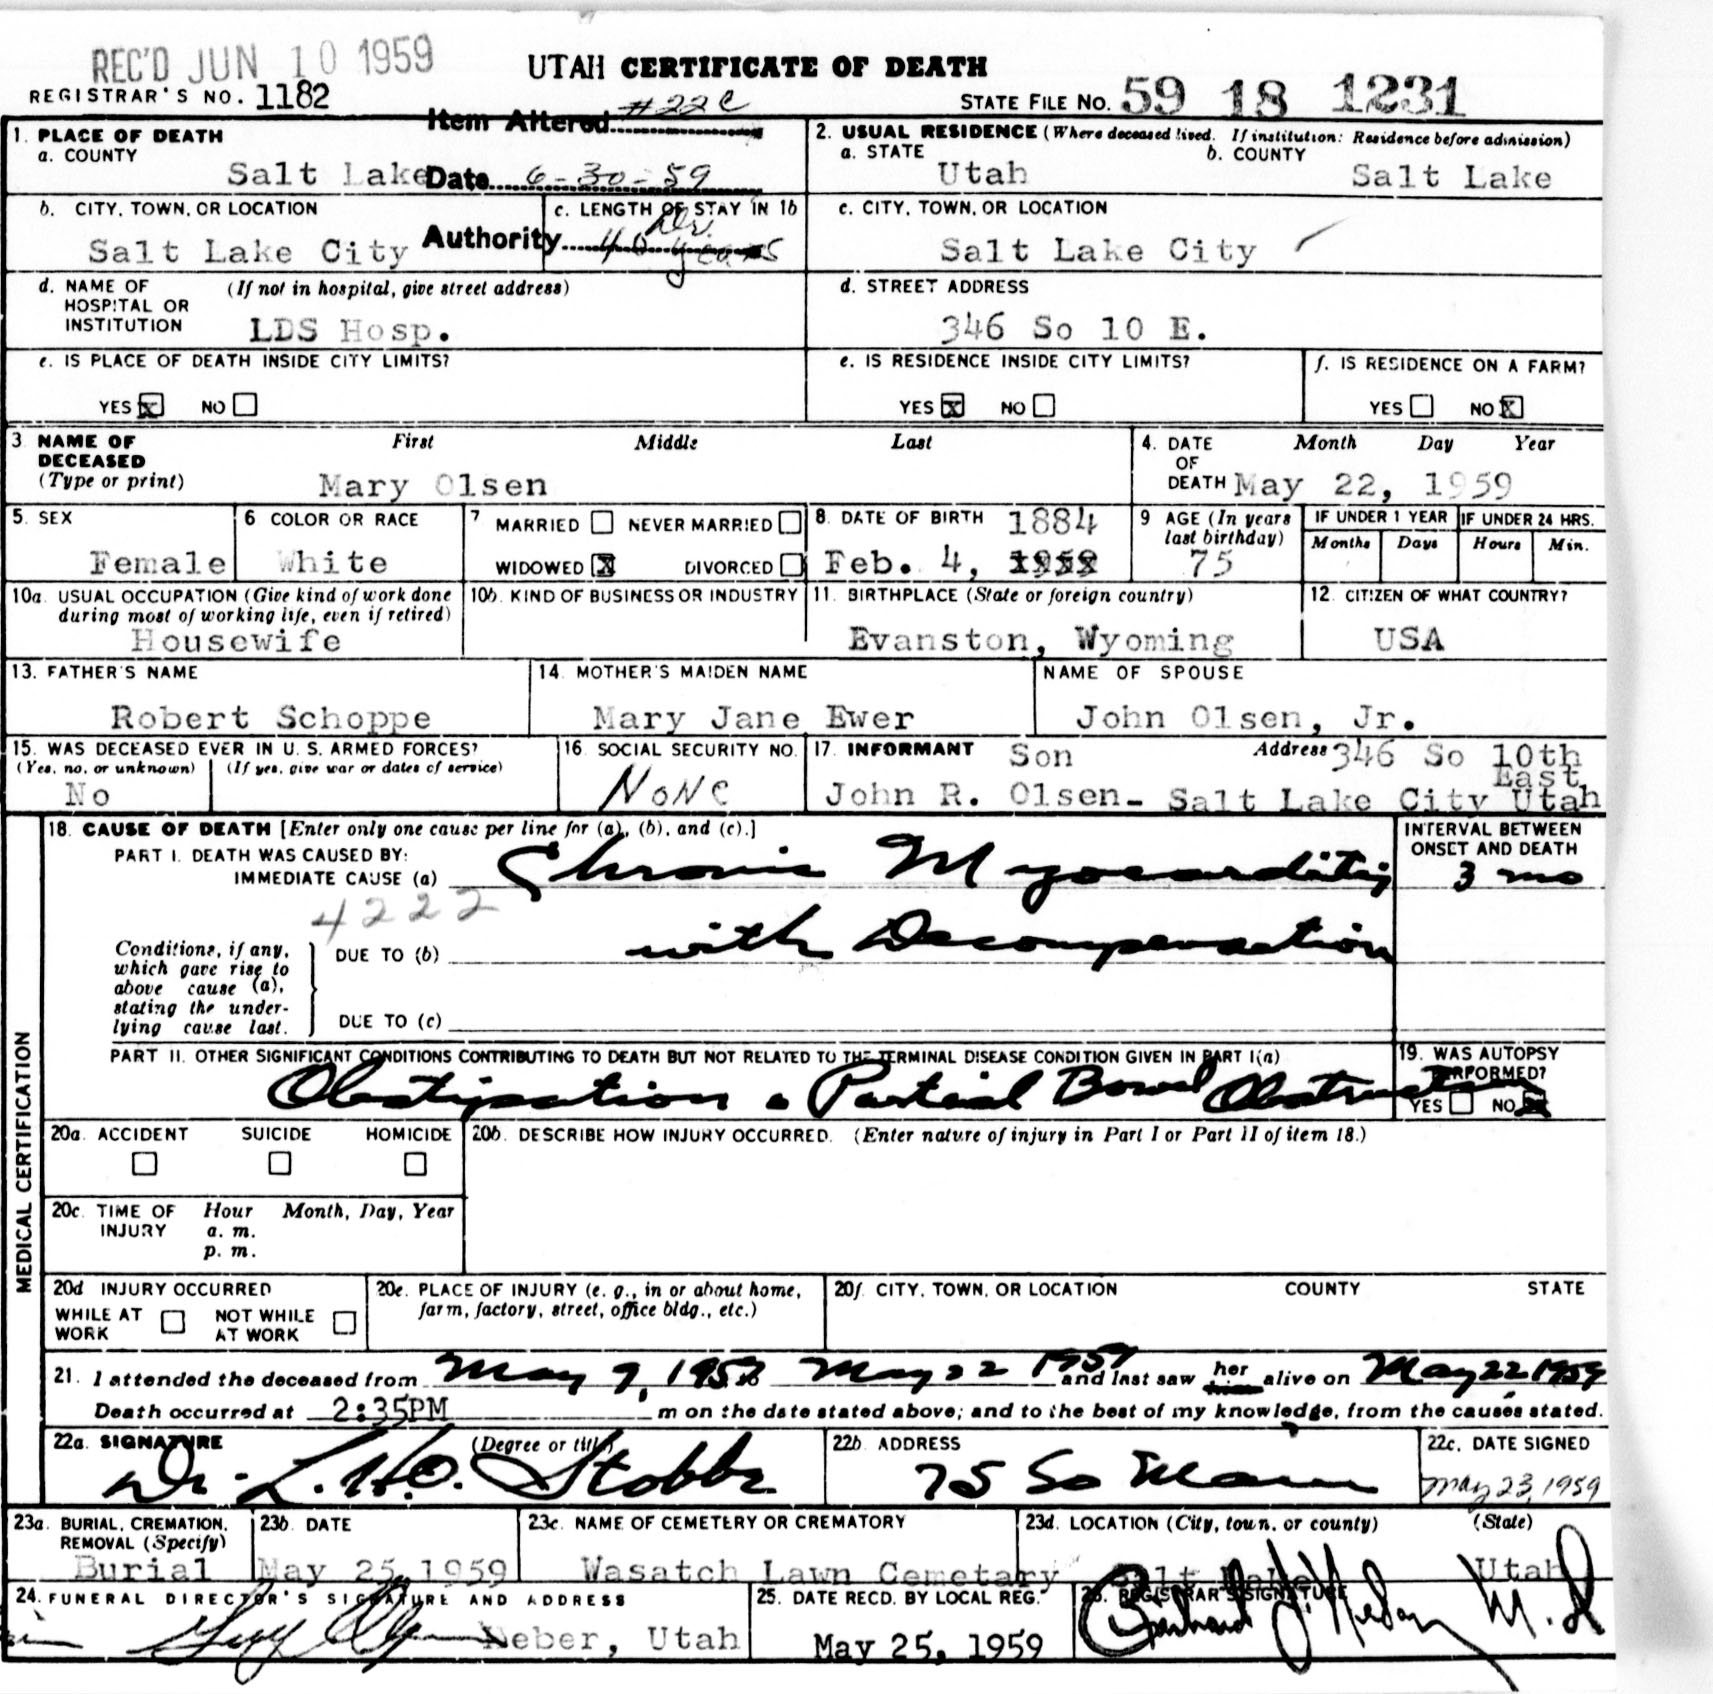 REC'D JUN 10 1959
UTAH CERTIFICATE OF DEATH
REGISTRAR'S NO. 1182
STATE FILE NO. 59 18 1231
Item Altered #22C
Date 6-30-59
Authority Dr.
1. PLACE OF DEATH
a. COUNTY
Salt Lake
2. USUAL RESIDENCE (Where deceased lived. If institution: Residence before admission)
a. STATE
Utah
b. COUNTY
Salt Lake
b. CITY, TOWN, OR LOCATION
Salt Lake City
c. LENGTH OF STAY IN 1b
40 years
c. CITY, TOWN, OR LOCATION
Salt Lake City
d. NAME OF HOSPITAL OR INSTITUTION (If not in hospital, give street address)
LDS Hosp.
d. STREET ADDRESS
346 So 10 E.
e. IS PLACE OF DEATH INSIDE CITY LIMITS?
YES X NO
e. IS RESIDENCE INSIDE CITY LIMITS?
YES X NO
f. IS RESIDENCE ON A FARM?
YES NO X
3 NAME OF DECEASED (Type or print)
First Middle Last
Mary Olsen
4. DATE OF DEATH
Month Day Year
May 22, 1959
5. SEX
Female
6 COLOR OR RACE
White
7 MARRIED NEVER MARRIED
WIDOWED X DIVORCED
8. DATE OF BIRTH 1884
Feb. 4,
9 AGE (In years last birthday)
75
IF UNDER 1 YEAR
Months Days
IF UNDER 24 HRS.
Hours Min.
10a. USUAL OCCUPATION (Give kind of work done during most of working life, even if retired)
Housewife
10b. KIND OF BUSINESS OR INDUSTRY
11. BIRTHPLACE (State or foreign country)
Evanston, Wyoming
12. CITIZEN OF WHAT COUNTRY?
USA
13. FATHER'S NAME
Robert Schoppe
14. MOTHER'S MAIDEN NAME
Mary Jane Ewer
NAME OF SPOUSE
John Olsen, Jr.
15. WAS DECEASED EVER IN U. S. ARMED FORCES?
(Yes, no, or unknown) (If yes, give war or dates of service)
No
16. SOCIAL SECURITY NO.
NONE
17. INFORMANT Son Address 346 So 10th East
John R. Olsen- Salt Lake City Utah
MEDICAL CERTIFICATION
18. CAUSE OF DEATH [Enter only one cause per line for (a), (b), and (c).]
PART I. DEATH WAS CAUSED BY:
IMMEDIATE CAUSE (a) Chronic Myocarditis
4222
Conditions, if any, which gave rise to above cause (a), stating the underlying cause last.
DUE TO (b) with Decompensation
DUE TO (c)
INTERVAL BETWEEN ONSET AND DEATH
3 mo
PART II. OTHER SIGNIFICANT CONDITIONS CONTRIBUTING TO DEATH BUT NOT RELATED TO THE TERMINAL DISEASE CONDITION GIVEN IN PART I(a)
Obstipation & Partial Bowel Obstruction
19. WAS AUTOPSY PERFORMED?
YES NO X
20a. ACCIDENT SUICIDE HOMICIDE
20b. DESCRIBE HOW INJURY OCCURRED. (Enter nature of injury in Part I or Part II of item 18.)
20c. TIME OF INJURY
Hour Month, Day, Year
a. m.
p. m.
20d INJURY OCCURRED
WHILE AT WORK NOT WHILE AT WORK
20e. PLACE OF INJURY (e. g., in or about home, farm, factory, street, office bldg., etc.)
20f. CITY, TOWN, OR LOCATION COUNTY STATE
21. I attended the deceased from May 9, 1958 May 22 1959 and last saw her him alive on May 22 1959
Death occurred at 2:35PM m on the date stated above; and to the best of my knowledge, from the causes stated.
22a. SIGNATURE (Degree or title)
Dr. L. H. O. Stobbe
22b. ADDRESS
75 So Main
22c. DATE SIGNED
May 23, 1959
23a. BURIAL, CREMATION, REMOVAL (Specify)
Burial
23b. DATE
May 25, 1959
23c. NAME OF CEMETERY OR CREMATORY
Wasatch Lawn Cemetary
23d. LOCATION (City, town, or county) (State)
Salt Lake Utah
24. FUNERAL DIRECTOR'S SIGNATURE AND ADDRESS
Heber, Utah
25. DATE RECD. BY LOCAL REG.
May 25, 1959
26. REGISTRAR'S SIGNATURE
M.D